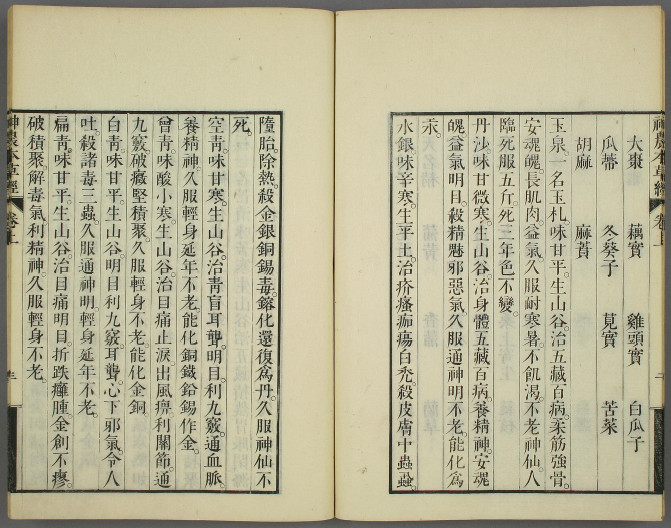 神農本草經 卷上
大棗 藕實 雞頭實 白瓜子
瓜蒂 冬葵子 莧實 苦菜
胡麻 麻蕡
玉泉一名玉札味甘平。生山谷。治五藏百病。柔筋強骨。
安魂魄。長肌肉。益氣。久服耐寒暑。不飢渴。不老神仙。人
臨死服五斤。死三年色不變。
丹沙味甘微寒。生山谷。治身體五藏百病。養精神。安魂
魄。益氣明目。殺精魅邪惡氣。久服通神明不老。能化爲
汞。
水銀味辛寒。生平土。治疥瘙痂瘍白禿。殺皮膚中蟲蝨。
墮胎。除熱。殺金銀銅錫毒。鎔化還復爲丹。久服神仙不
死。
空青味甘寒。生山谷。治青盲耳聾。明目。利九竅。通血脈。
養精神。久服輕身延年不老。能化銅鐵鉛錫作金。
曾青味酸小寒。生山谷。治目痛止淚出風痹。利關節。通
九竅。破癥堅積聚。久服輕身不老。能化金銅
白青味甘平。生山谷。明目利九竅耳聾。心下邪氣。令人
吐。殺諸毒三蟲。久服通神明輕身延年不老。
扁青味甘平。生山谷。治目痛明目。折跌癰腫金創不瘳。
破積聚解毒氣。利精神。久服輕身不老。
神農本草經 卷上 三